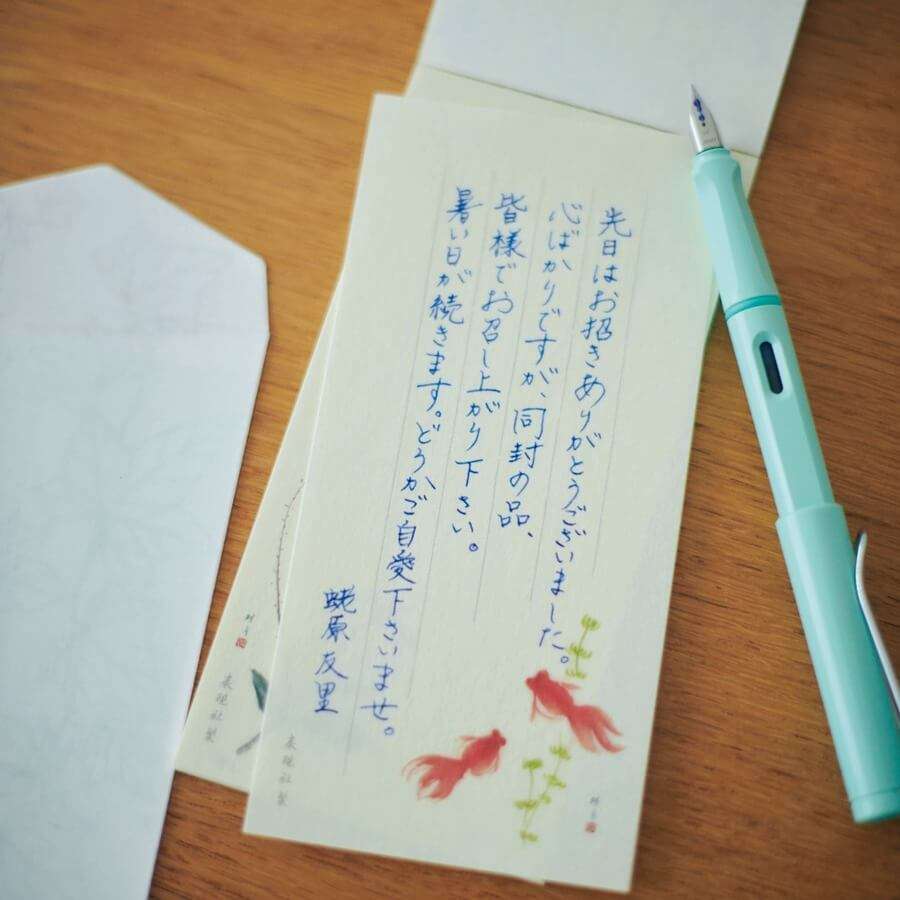 先日はお招きありがとうございました。
心ばかりですが、同封の品、
皆様でお召し上がり下さい。
暑い日が続きます。どうかご自愛下さいませ。
蛯原友里
表現社製
表現社製